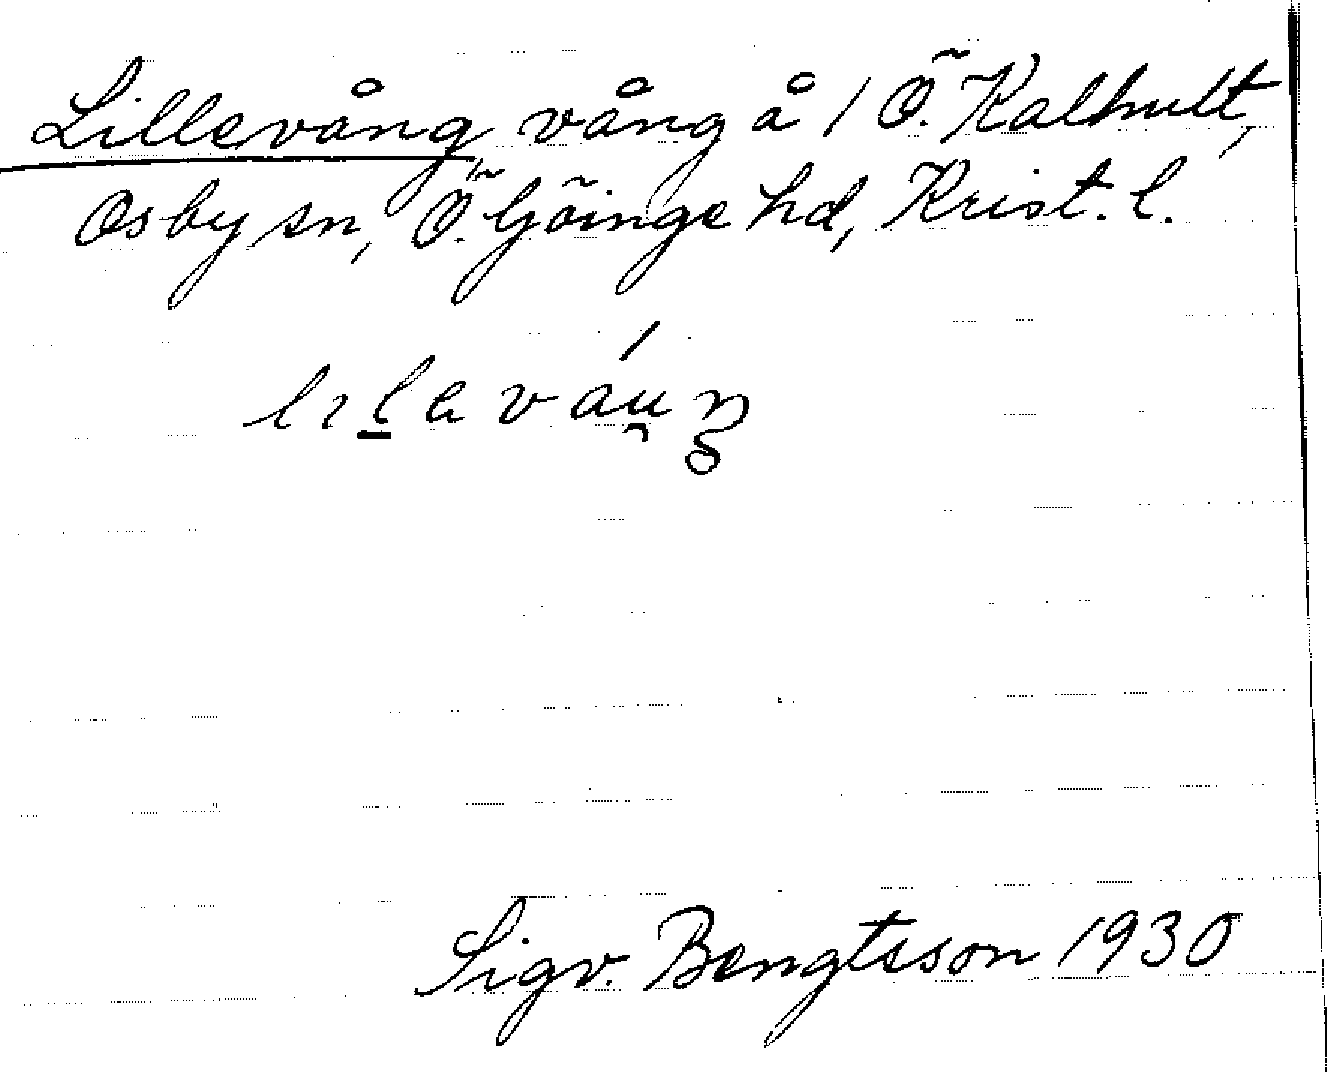 Lillevång, vång å 1 Ö. Kalhult,
Osby sn, Ö. Göinge hd, Krist. l.
Sigv. Bengtsson 1930